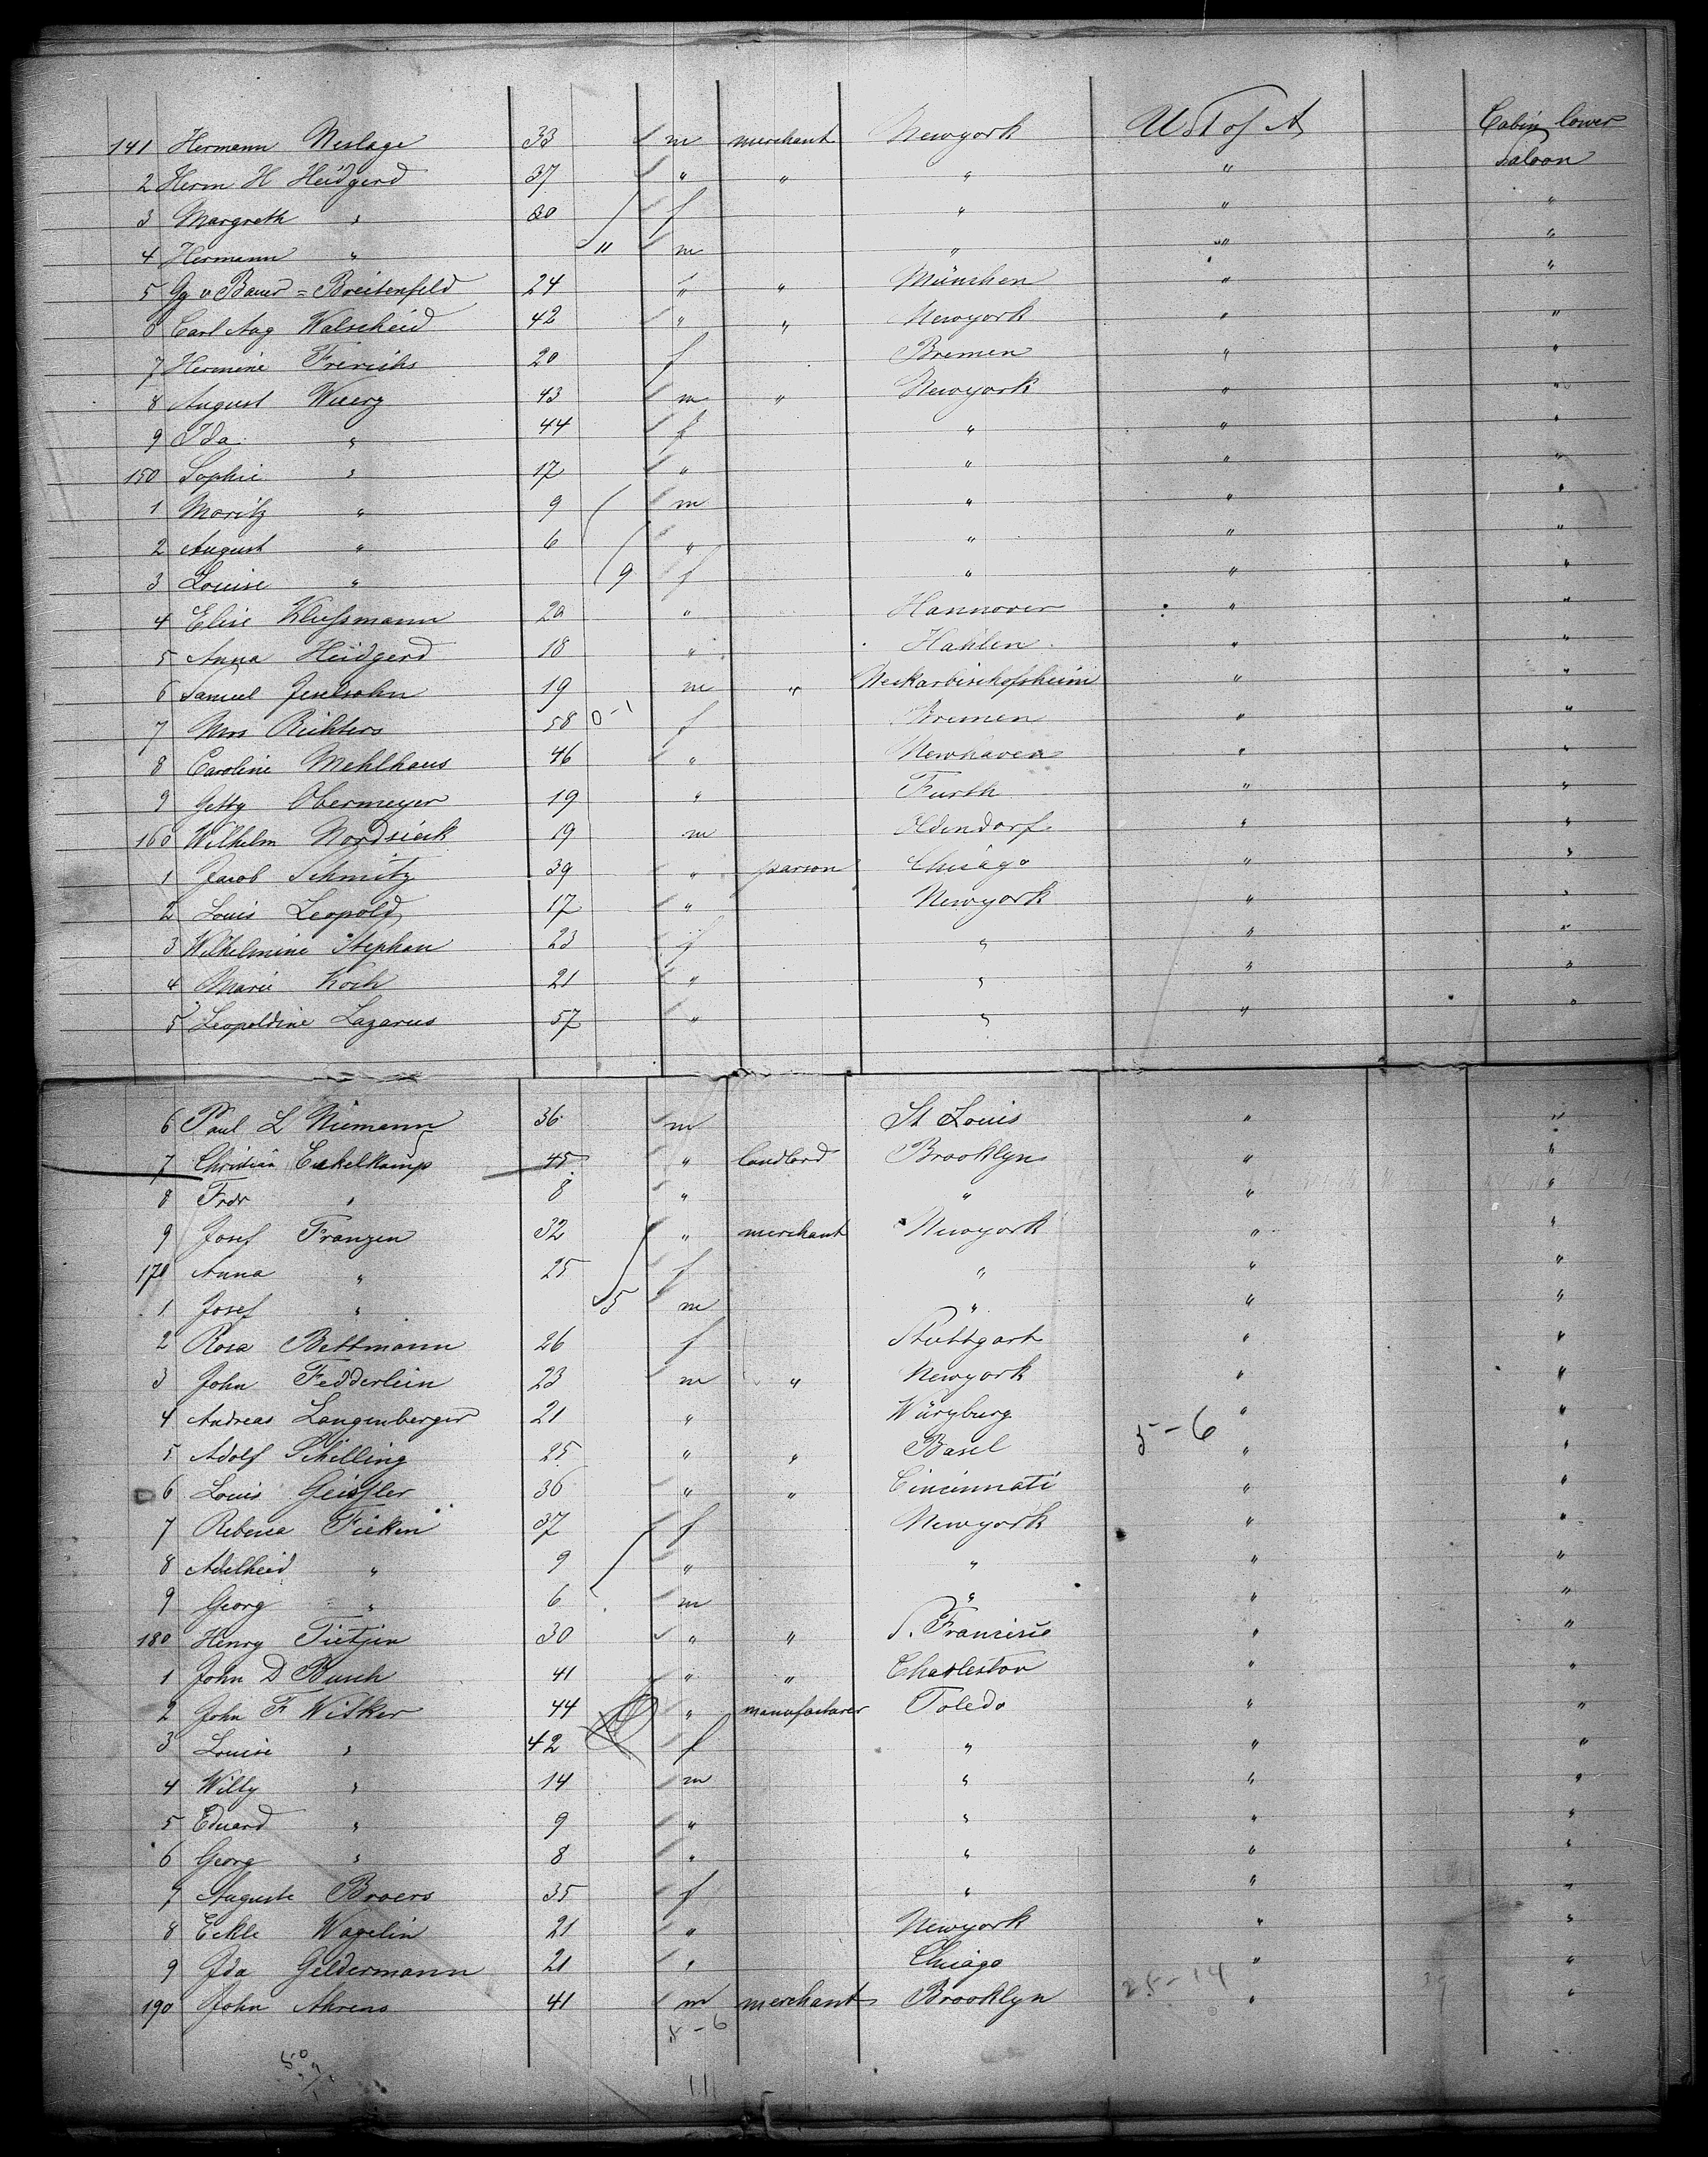 141 Hermann Neslage 33 m merchant Newyork U St of A Cabin lower
saloon
2 Herm H Heidgerd 37 " " " "
3 Margreth " 30 f " " "
4 Hermann " 11 m " " "
5 Gg v Bauer = Breitenfeld 24 " " München " "
6 Carl Aug Walscheid 42 " " Newyork " "
7 Hermine Frerichs 20 f Bremen " "
8 August Wierg 43 m " Newyork " "
9 Ida " 44 f " " "
150 Sophie " 17 " " " "
1 Moritz " 9 m " " "
2 August " 6 " " " "
3 Louise " 9 f " " "
4 Elise Klussmann 20 " Hannover " "
5 Anna Heidgerd 18 " Hahlen " "
6 Samuel Jeselsohn 19 m " Neckarbischofsheim " "
7 Mrs Richters 58 0-1 f Bremen " "
8 Caroline Mehlhaus 46 " Newhaven " "
9 Getty Obermeyer 19 " Furth " "
160 Wilhelm Nordsieck 19 m Oldendorf " "
1 Jacob Schmitz 39 " parson Chicago " "
2 Louis Leopold 17 " Newyork " "
3 Wilhelmine Stephan 23 f " " "
4 Marie Koch 21 " " " "
5 Leopoldine Lazarus 57 " " " "
6 Paul L Niemann 36 m St Louis " "
7 Christian Eickelkamp 45 " landlord Brooklyn " "
8 Frdr " 8 " " " "
9 Josef Franzen 32 " merchant Newyork " "
170 Anna " 25 f " " "
1 Josef " 5 m " " "
2 Rosa Bettmann 26 f Stuttgart " "
3 John Fedderlein 23 m " Newyork " "
4 Andreas Langenberger 21 " Würzburg " "
5-6
5 Adolf Schilling 25 " " Basel " "
6 Louis Geissler 36 " " Cincinnati " "
7 Rebecca Ficken 37 f Newyork " "
8 Adelheid " 9 " " " "
9 Georg " 6 m " " "
180 Henry Tietjen 30 " " S. Francisco " "
1 John D Busch 41 " " Charleston " "
2 John F Wilker 44 " manufacturer Toledo " "
3 Louise " 42 f " " "
4 Willy " 14 m " " "
5 Eduard " 9 " " " "
6 Georg " 8 " " " "
7 Auguste Broers 35 f " " "
8 Eckle Wagelin 21 " Newyork " "
9 Ida Geldermann 21 " Chicago " "
190 John Ahrens 41 m merchant Brooklyn 25-14 " "
5-6
50